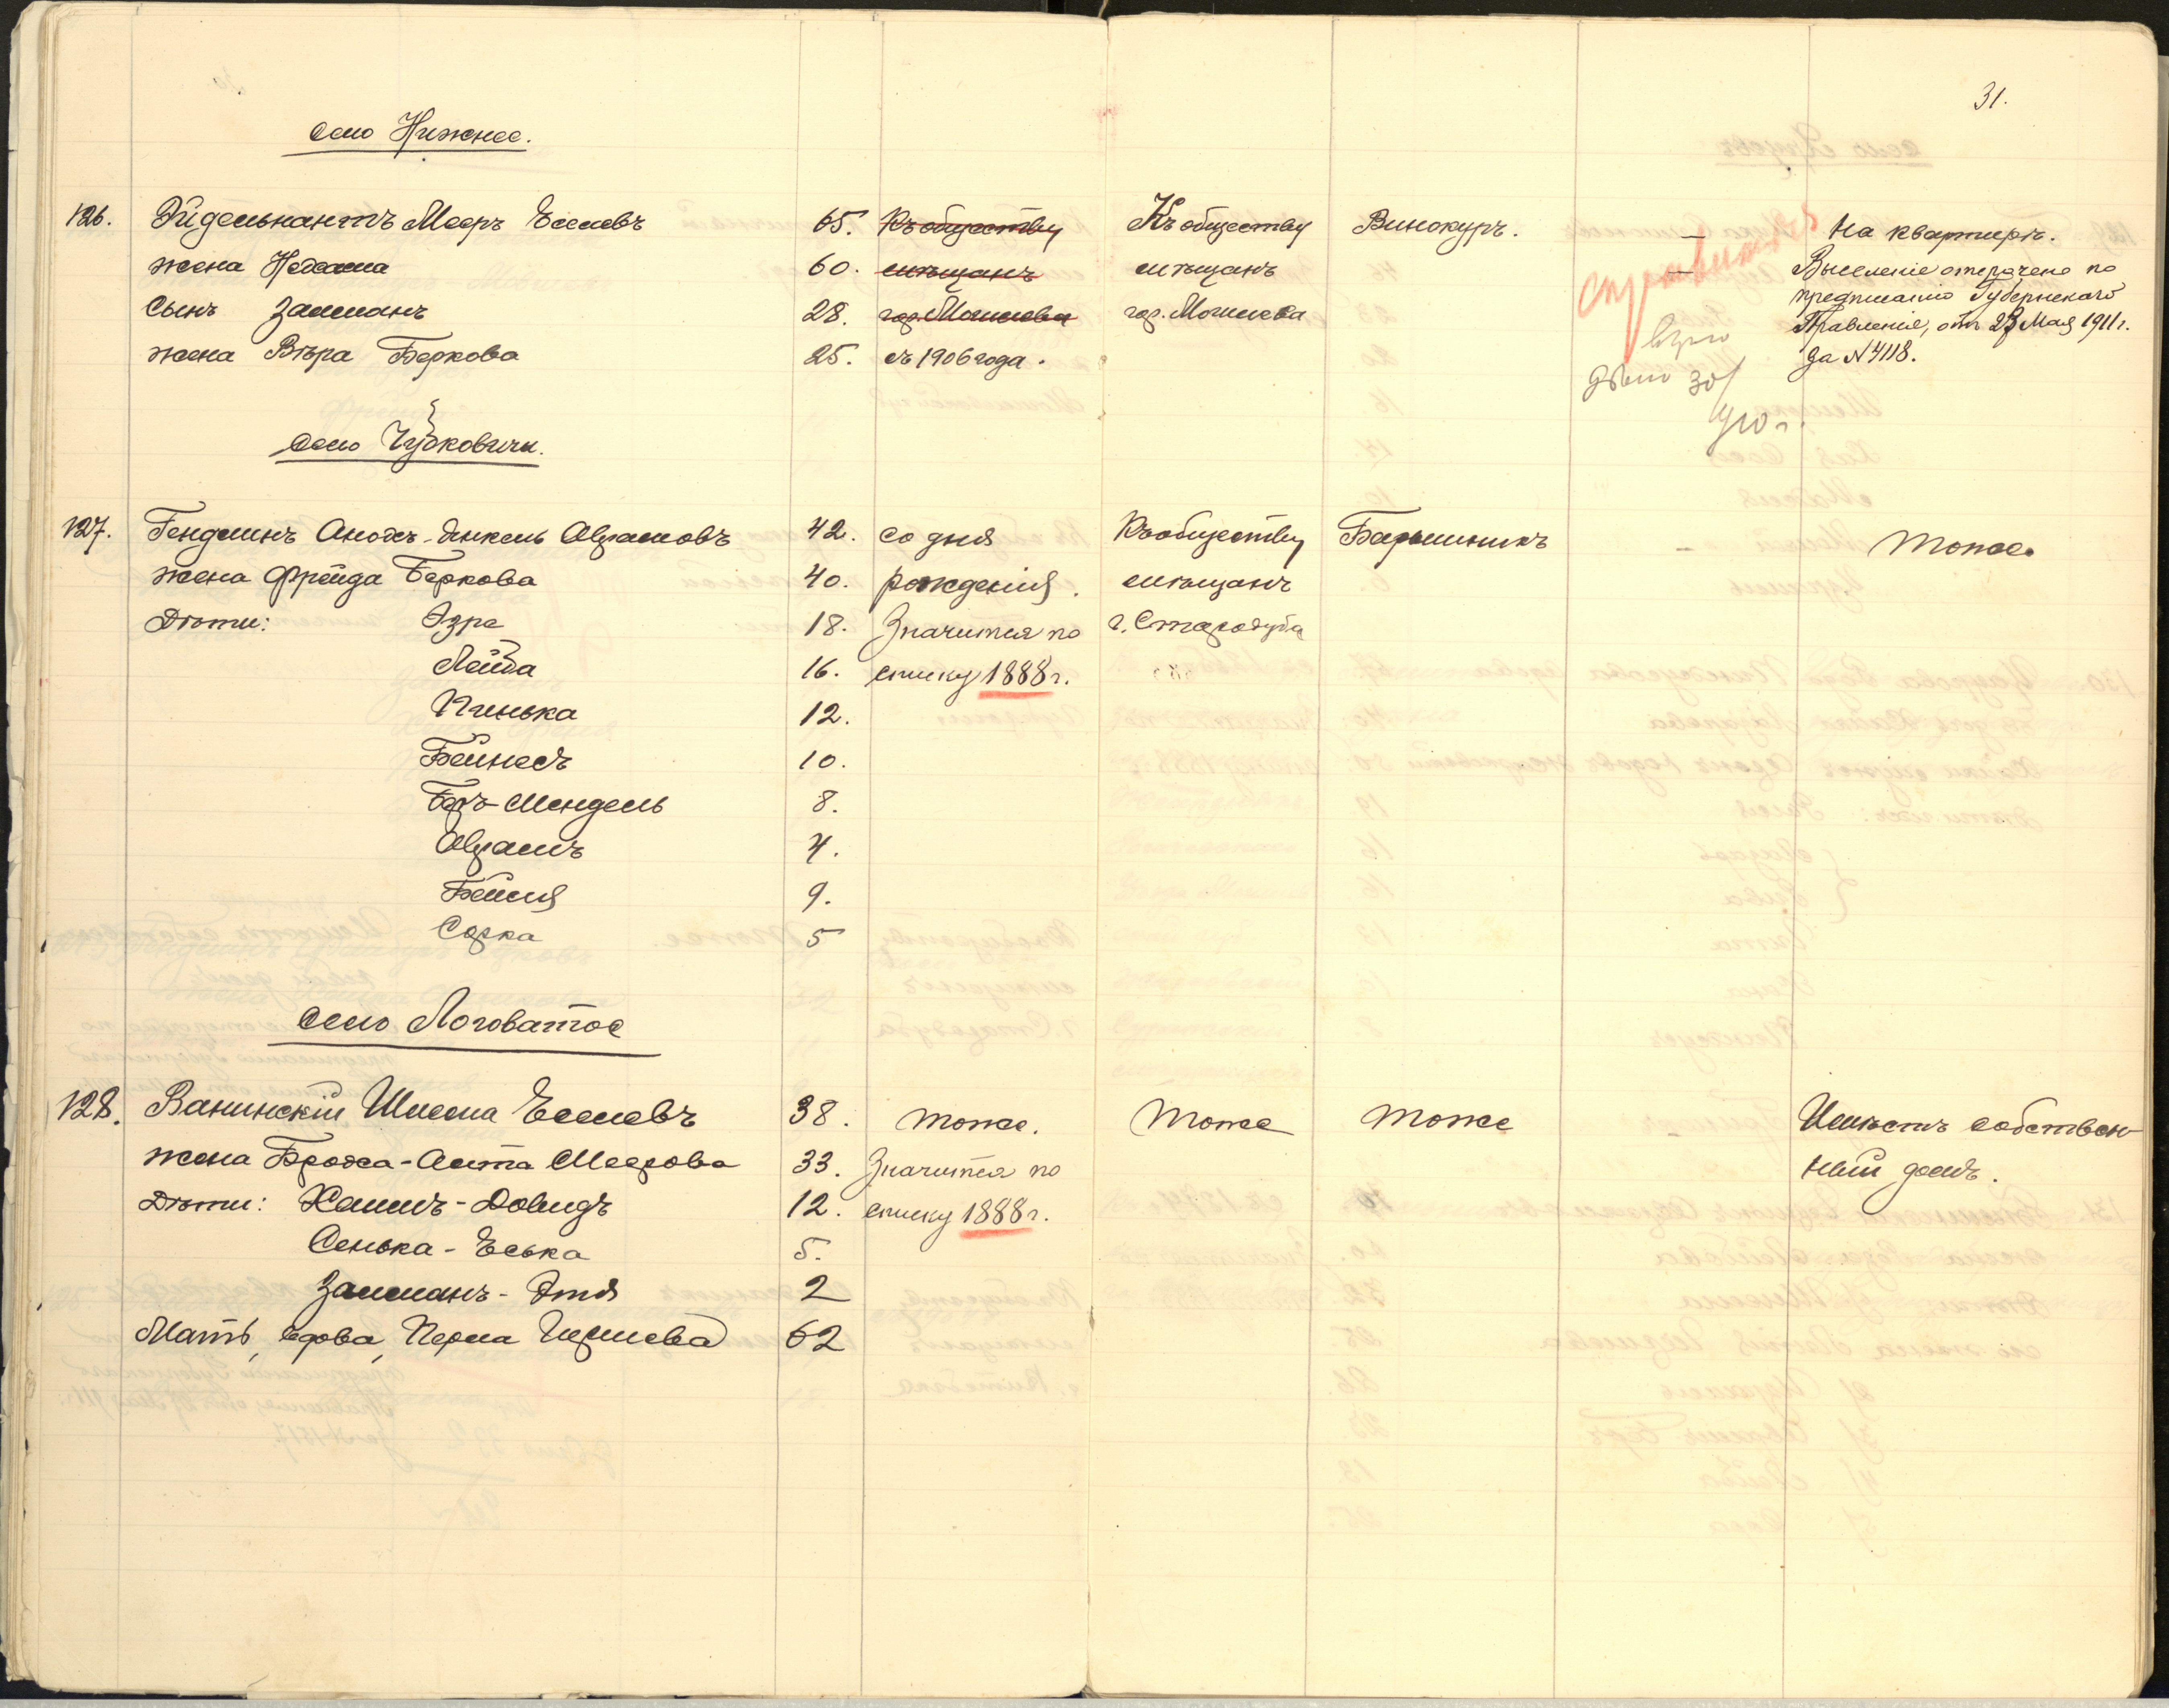 31.
село Нижнее.
126. Эйдельнантъ Мееръ Еселевъ 65. Къ обществу Къ обществу Винокуръ. — На квартирѣ.
жена Нехама 60. мѣщанъ мѣщанъ — Выселеніе отсрочено по
сынъ Залманъ 28. гор. Могилева гор. Могилева предписанію Губернскаго
жена Вѣра Беркова 25. съ 1906 года. Правленія, отъ 23 Мая 1911 г.
за N 4118.
дѣло 30/
село Чубковичи.
127. Гендлинъ Анохъ-Янкель Абрамовъ 42. со дня Къ обществу Барышникъ — Тоже.
жена Фрейда Беркова 40. рожденія. мѣщанъ
Дѣти: Эзра 18. Значится по г. Стародуба
Лейба 16. списку 1888 г.
Пинька 12.
Бейнесъ 10.
Беръ-Мендель 8.
Абрамъ 4.
Бейля 9.
Сорка 5
село Логоватое
128. Ванинскій Шлема Еселевъ 38. тоже. Тоже тоже Имѣетъ собствен-
жена Броха-Асита Меерова 33. Значится по ный домъ.
Дѣти: Хаимъ-Довидъ 12. списку 1888 г.
Сенька-Еська 5.
Залманъ-Этя 2
Мать, вдова, Перла Гиршева 62